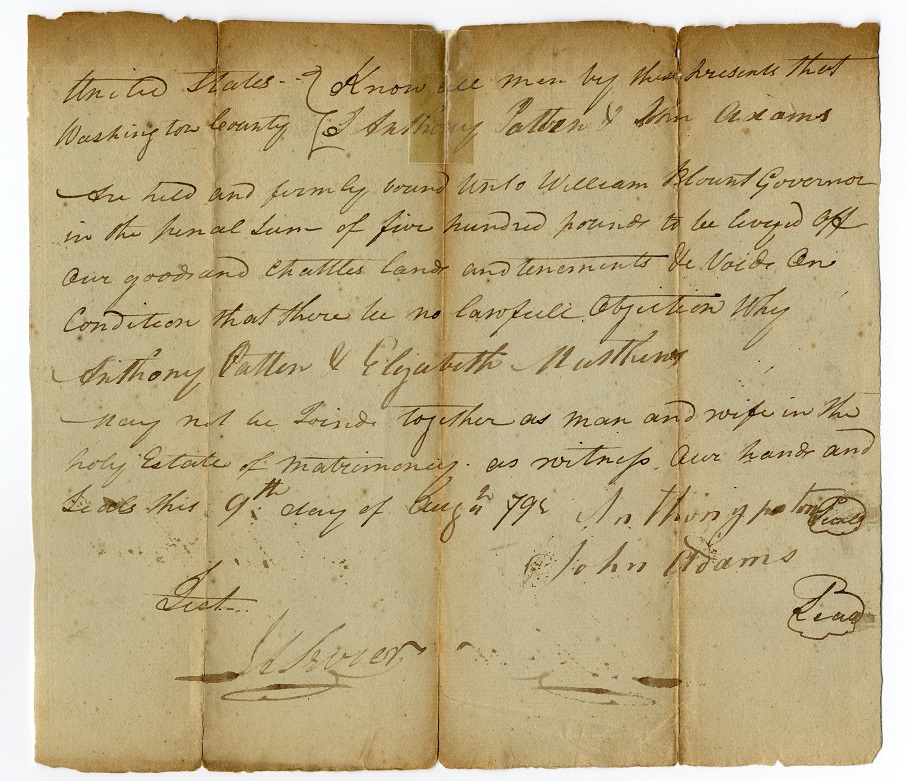 United States -- Know all men by these presents that
Washington County I Anthony Patten & John Adams
Are held and firmly bound Unto William Blount Governor
in the penal Sum of five hundred pounds to be levyed off
Our goods and Chattles lands and tenements &c Void On
Condition that there be no lawfull Objection Why
Anthony Patten & Elizabeth Matthews
May not be Joind together as man and wife in the
holy Estate of matrimoney. as witness Our hands and
Seals this 9th day of Augst Anthony paton Seal
John Adams
Seal
Test
JA Sevier